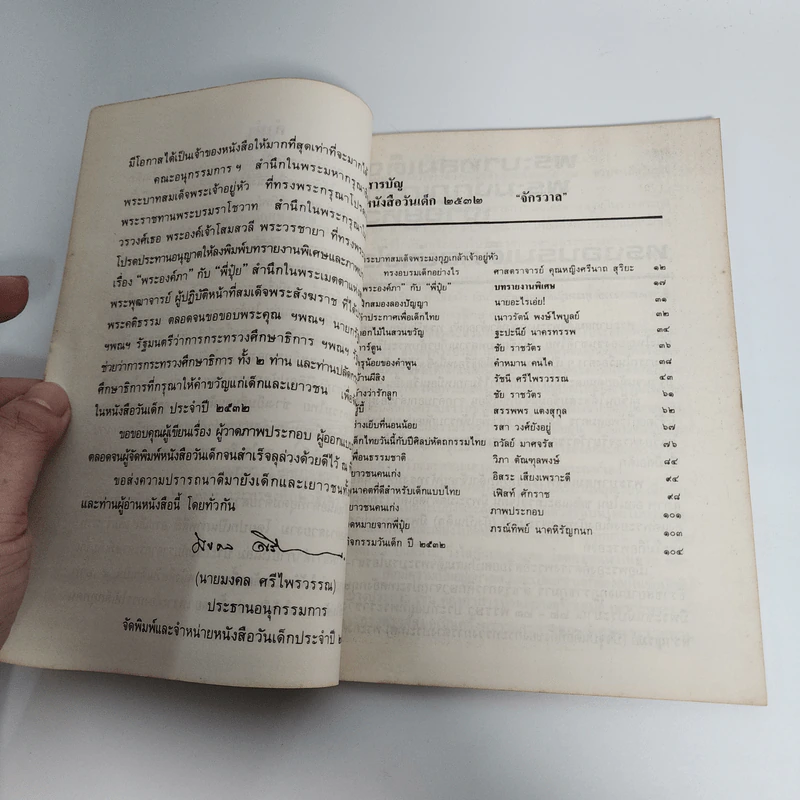 มีโอกาสได้เป็นเจ้าของหนังสือให้มากที่สุดเท่าที่จะมากได้
คณะอนุกรรมการ ฯ สำนึกในพระมหากรุณา
พระบาทสมเด็จพระเจ้าอยู่หัว ที่ทรงพระกรุณาโปรด
พระราชทานพระบรมราโชวาท สำนึกในพระกรุณา
วรวงศ์เธอ พระองค์เจ้าโสมสวลี พระวรชายา ที่ทรงพระ
โปรดประทานอนุญาตให้ลงพิมพ์บทรายงานพิเศษและภาพ
เรื่อง "พระองค์ภา" กับ "พี่ปุ๋ย" สำนึกในพระเมตตา
พระพุฒาจารย์ ผู้ปฏิบัติหน้าที่สมเด็จพระสังฆราช ที่ได้
พระคติธรรม ตลอดจนขอขอบพระคุณ ฯพณฯ นายก
ฯพณฯ รัฐมนตรีว่าการกระทรวงศึกษาธิการ ฯพณฯ
ช่วยว่าการกระทรวงศึกษาธิการ ทั้ง ๒ ท่าน และท่านปลัด
ศึกษาธิการที่กรุณาให้คำขวัญแก่เด็กและเยาวชน เพื่อ
ในหนังสือวันเด็ก ประจำปี ๒๕๓๒
ขอขอบคุณผู้เขียนเรื่อง ผู้วาดภาพประกอบ ผู้ออกแบบ
ตลอดจนผู้จัดพิมพ์หนังสือวันเด็กจนสำเร็จลุล่วงด้วยดีไว้ ณ
ขอส่งความปรารถนาดีมายังเด็กและเยาวชนทั้ง
และท่านผู้อ่านหนังสือนี้ โดยทั่วกัน
(นายมงคล ศรีไพรวรรณ)
ประธานอนุกรรมการ
จัดพิมพ์และจำหน่ายหนังสือวันเด็กประจำปี ๒
ารบัญ
หนังสือวันเด็ก ๒๕๓๒ "จักรวาล"
ระบาทสมเด็จพระมงกุฎเกล้าเจ้าอยู่หัว
ทรงอบรมเด็กอย่างไร ศาสตราจารย์ คุณหญิงศรีนาถ สุริยะ ๑๒
พระองค์ภา" กับ "พี่ปุ๋ย" บทรายงานพิเศษ ๑๗
ฝึกสมองลองปัญญา นายอะไรเอ่ย! ๓๑
ประกาศเพื่อเด็กไทย เนาวรัตน์ พงษ์ไพบูลย์ ๓๒
ดอกไม้ในสวนขวัญ ฐะปะนีย์ นาครทรรพ ๓๔
าร์ตูน ชัย ราชวัตร ๓๖
รุน้อยของคำพูน คำหมาน คนไค ๓๘
บ้านผีสิง รัชนี ศรีไพรวรรณ ๔๓
ว่ารักลูก ชัย ราชวัตร ๖๑
ู้นี้ สรรพพร แดงสุกุล ๖๒
ย่างเย็บที่นอนน้อย รสา วงศ์ยังอยู่ ๖๗
ด็กไทยวันนี้กับปีศิลปหัตถกรรมไทย ถวัลย์ มาศจรัส ๗๖
พื่อนธรรมชาติ วิภา ตัณฑุลพงษ์ ๘๔
ยาวชนคนเก่ง อิสระ เสียงเพราะดี ๙๔
นาคตที่ดีสำหรับเด็กแบบไทย เฟิสท์ ศักราช ๙๘
ยาวชนคนเก่ง ภาพประกอบ ๑๐๑
ดหมายจากพี่ปุ๋ย ภรณ์ทิพย์ นาคหิรัญกนก ๑๐๓
กิจกรรมวันเด็ก ปี ๒๕๓๒ ๑๐๔